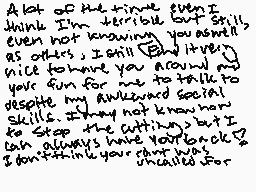 A lot of the time even I
think I'm terrible but still,
even not knowing you as well
as others, I still find it very
nice to have you around and
your fun for me to talk to
despite my awkward social
skills. I may not know how
to stop the cutting, but I
can always have your back ♡
I don't think your rant was
uncalled for